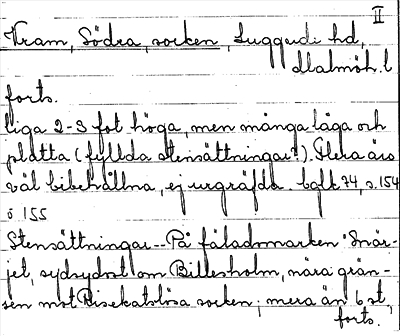 II
Kram, Södra, socken, Luggude hd,
Malmöh. l
forts.
liga 2-3 fot höga, men många låga och
platta (fyllda stensättningar?). Flera äro
väl bibehållna, ej urgräfda. bqfk 74, s. 154
o 155
Stensättningar -- På fäladsmarken "Snär-
jet, sydsydost om Billesholm, nära grän-
sen mot Risekatslösa socken; mera än 6 st,
forts.